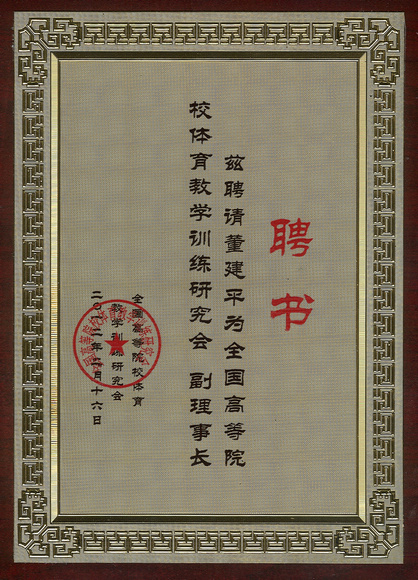 聘书
兹聘请董建平为全国高等院
校体育教学训练研究会 副理事长
全国高等院校体育
教学训练研究会
二〇一二年二月十六日